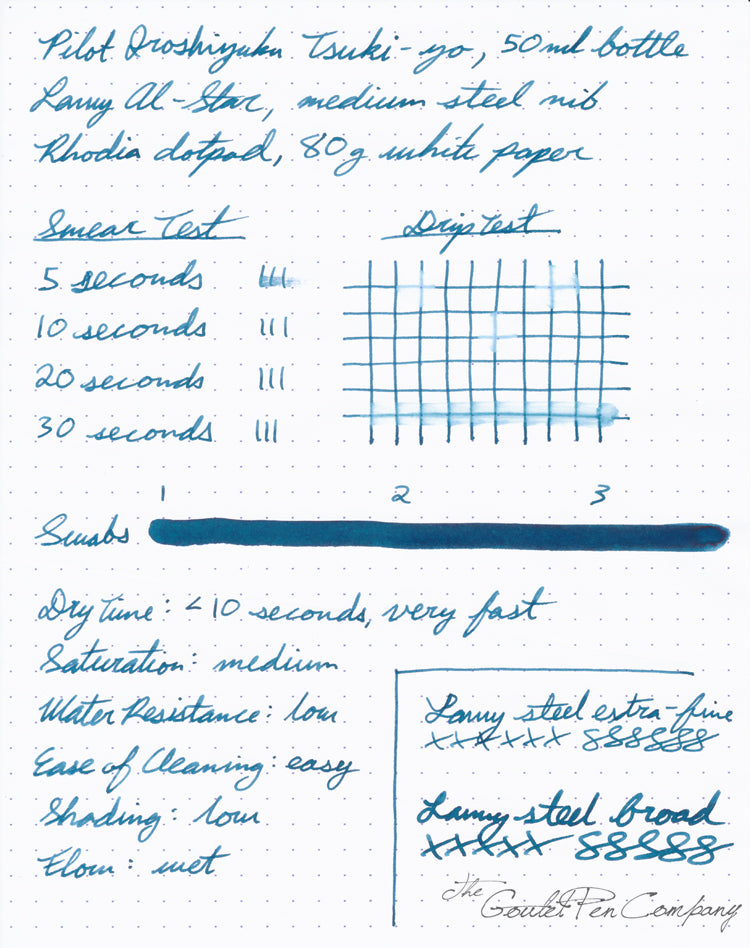 Pilot Iroshizuku Tsuki-yo, 50ml bottle
Lamy Al-Star, medium steel nib
Rhodia dotpad, 80g white paper
Smear Test
5 seconds III
10 seconds III
20 seconds III
30 seconds III
Drip Test
1 2 3
Swabs
Dry Time: <10 seconds, very fast
Saturation: medium
Water Resistance: low
Ease of Cleaning: easy
Shading: low
Flow: wet
Lamy steel extra-fine
xxxxxx 888888
Lamy steel broad
xxxxx 888888
The Goulet Pen Company